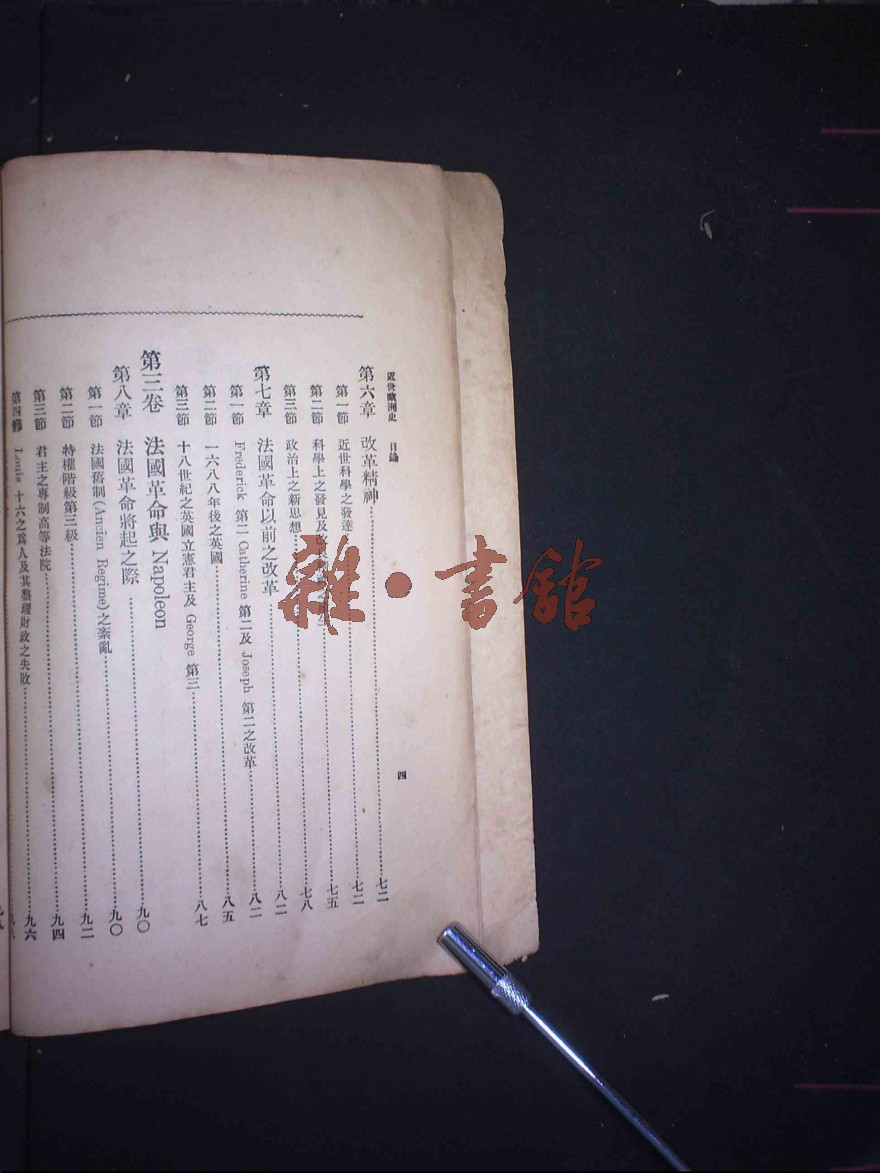 近世歐洲史 目錄 四
第六章 改革精神 七二
第一節 近世科學之發達 七二
第二節 科學上之發見及 七五
第三節 政治上之新思想 七八
第七章 法國革命以前之改革 八二
第一節 Frederick 第二 Catherine 第二及 Joseph 第二之改革 八二
第二節 一六八八年後之英國 八五
第三節 十八世紀之英國立憲君主及 George 第三 八七
第三卷 法國革命與 Napoleon 九〇
第八章 法國革命將起之際 九〇
第一節 法國舊制(Ancien Regime)之紊亂 九二
第二節 特權階級第三級 九四
第三節 君主之專制高等法院 九六
第四節 Louis 十六之爲人及其整理財政之失敗
雜·書館